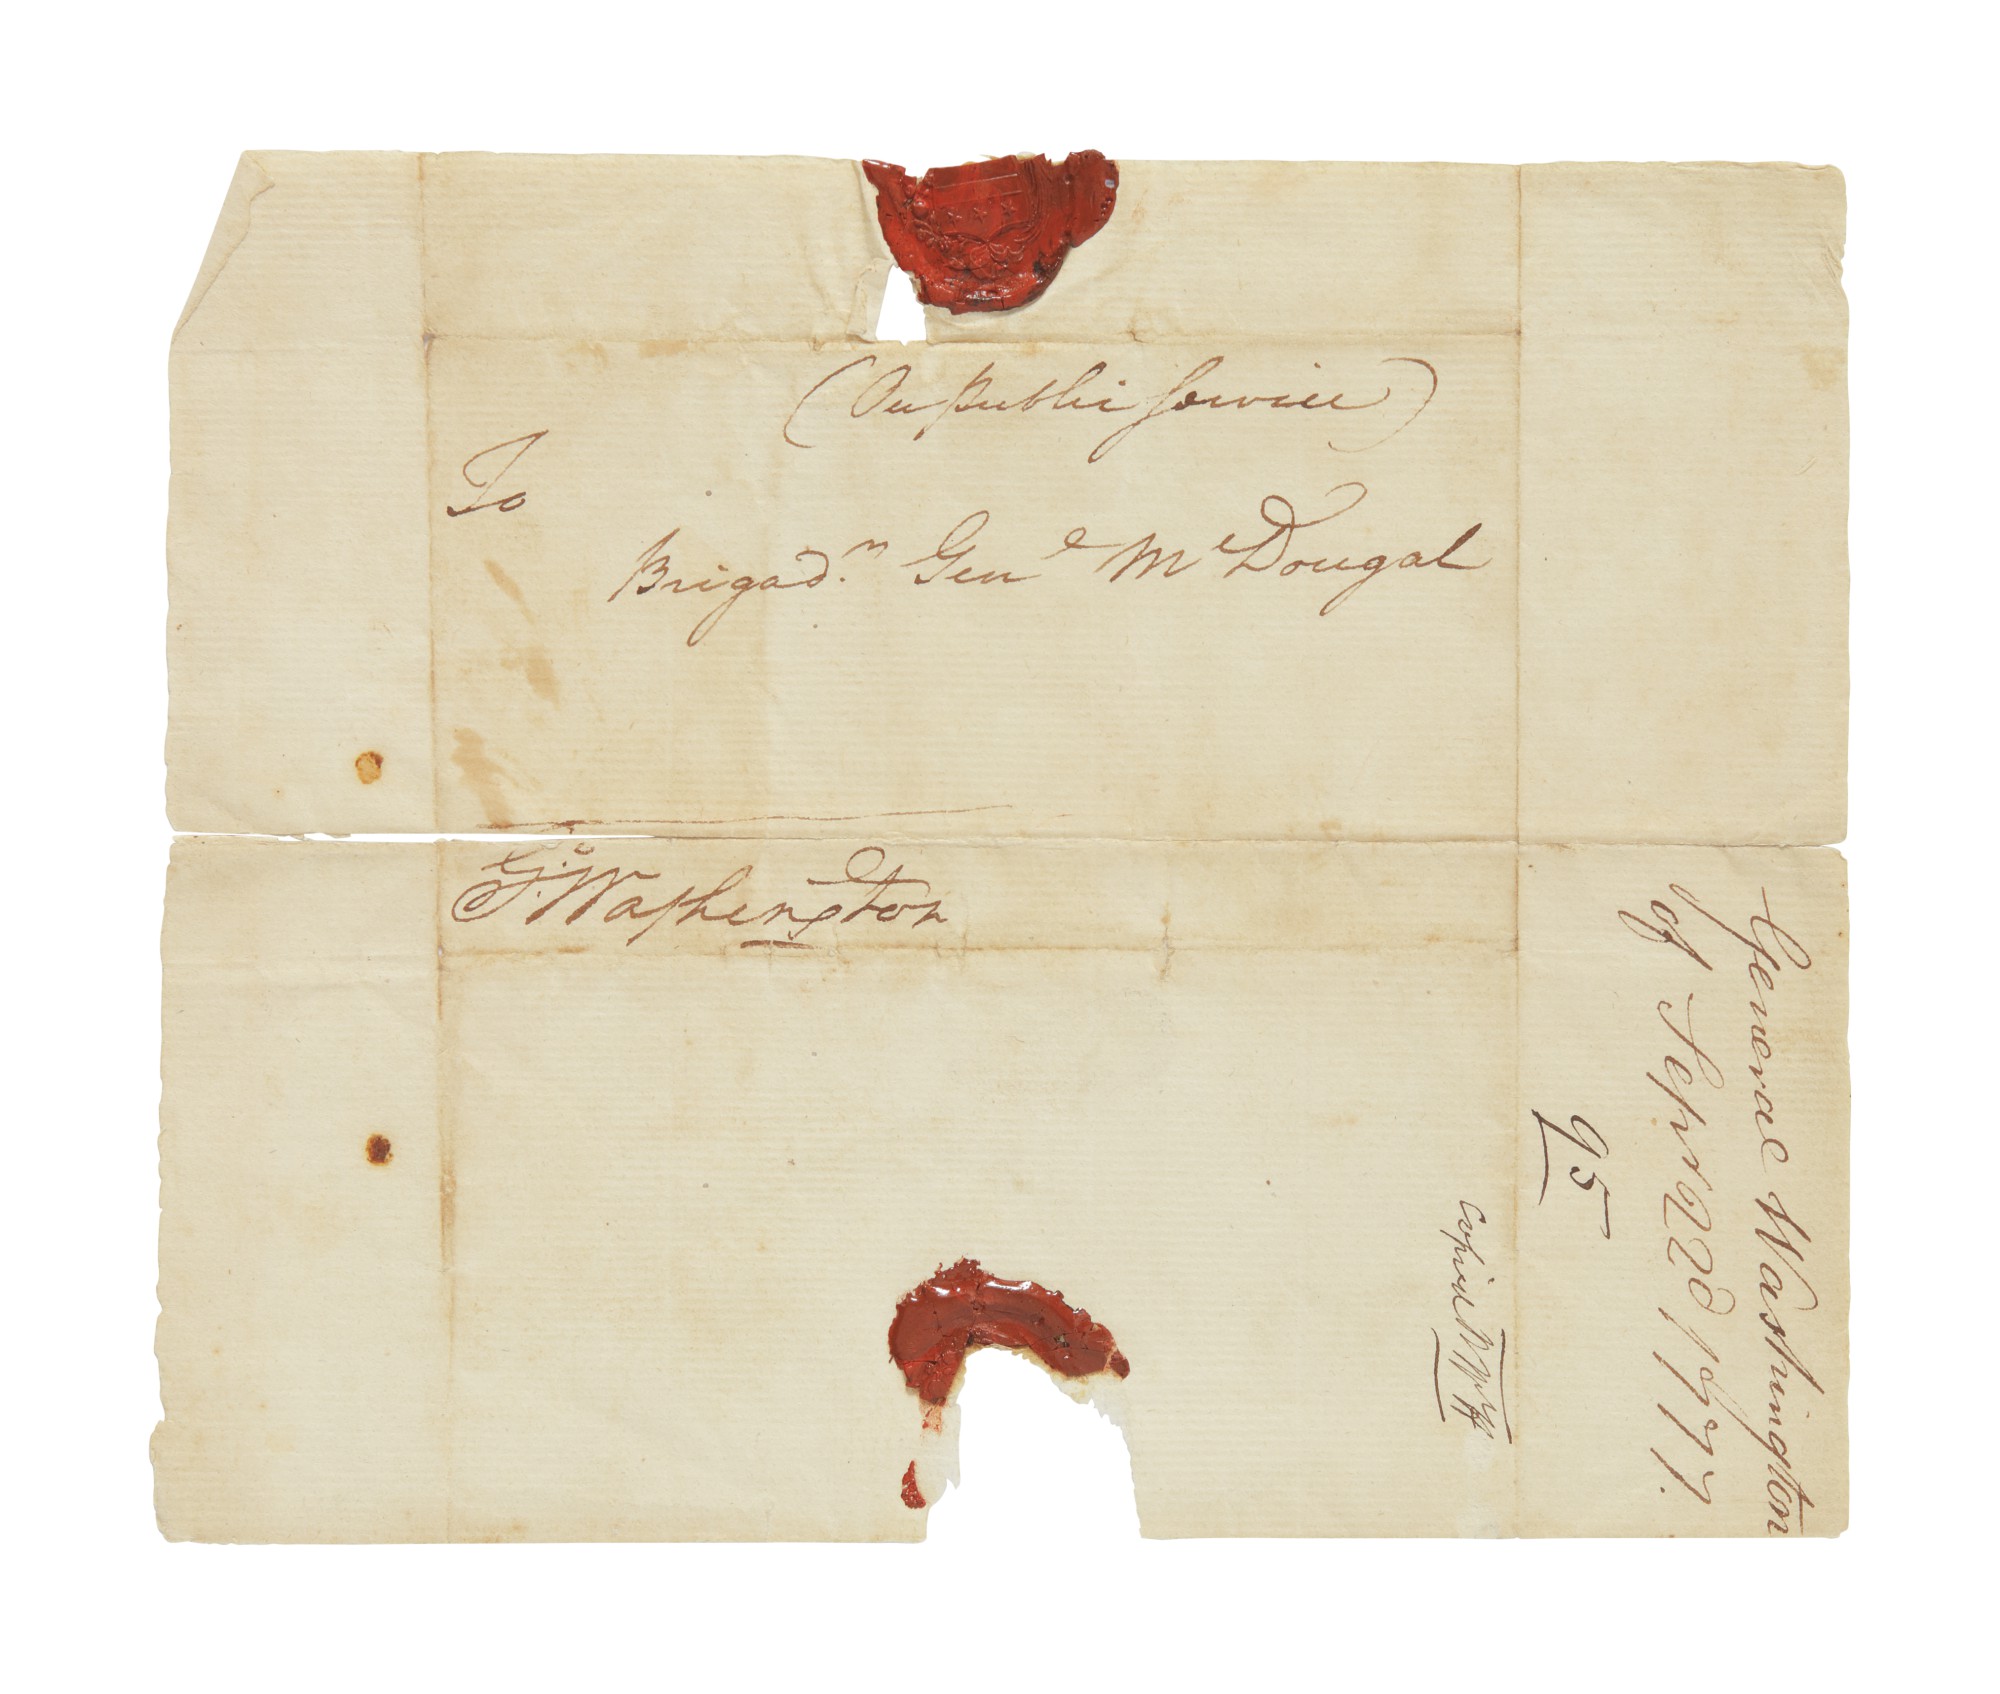 (On public service)
To
Brigad.r Gen.l McDougal
G:o Washington
General Washington
of Sept 22d 1777.
95
Copied